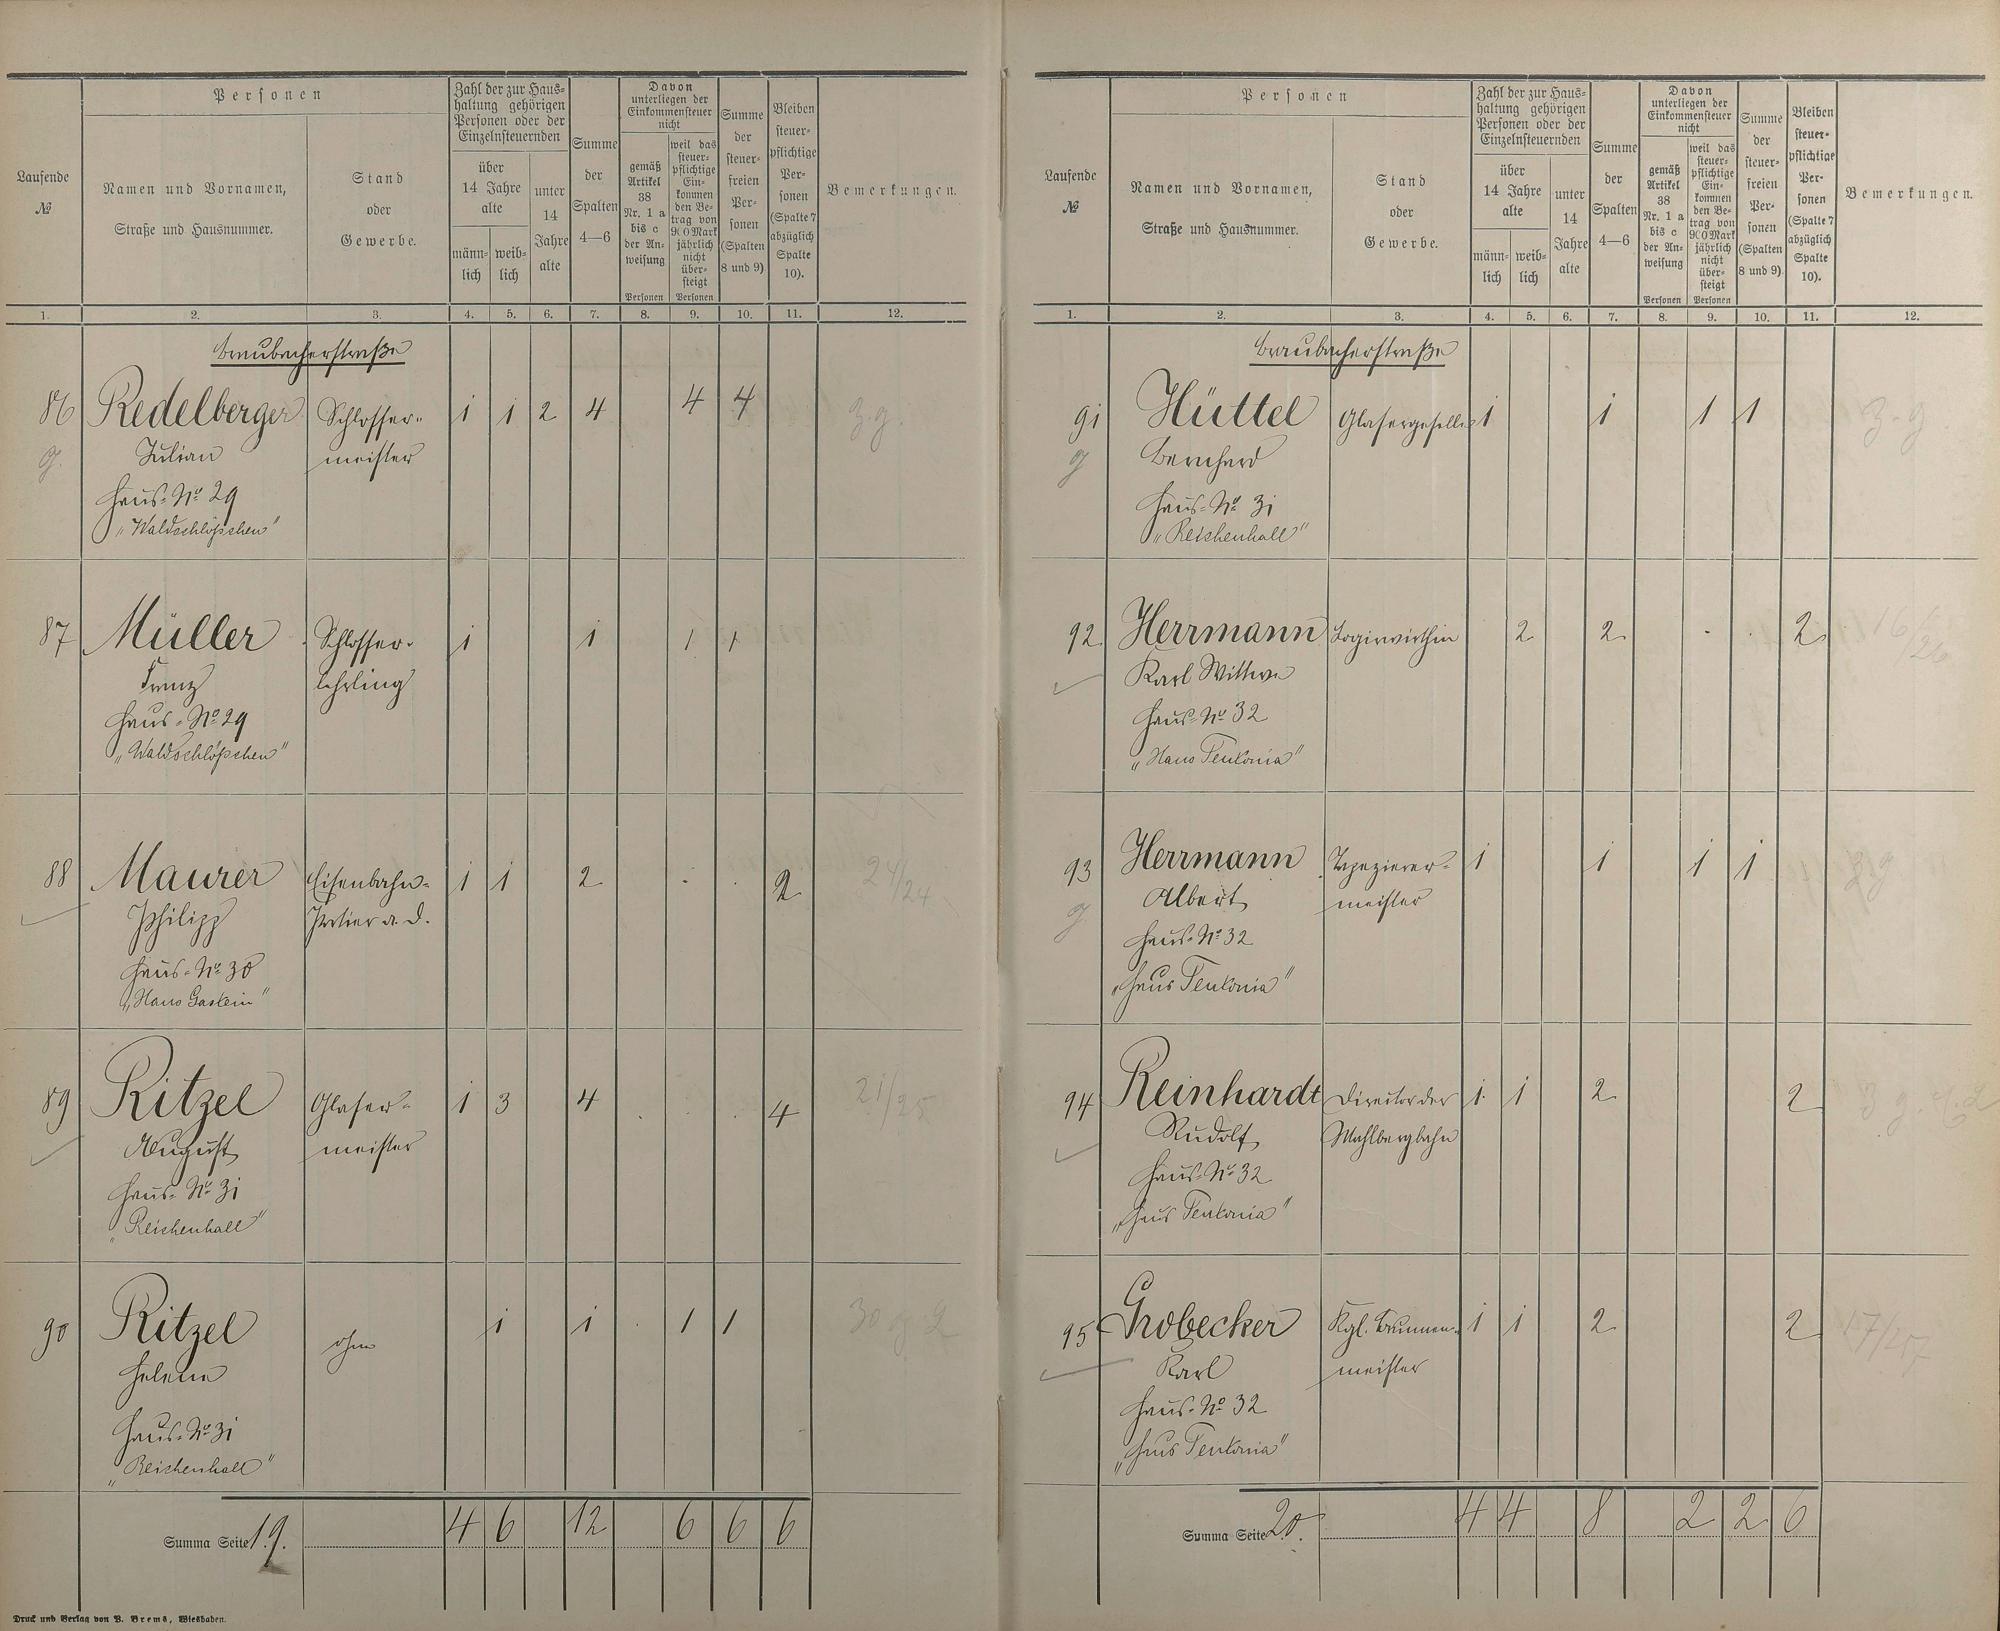 Laufende
№
Personen
Namen und Vornamen,
Straße und Hausnummer.
Stand
oder
Gewerbe.
Zahl der zur Haus=
haltung gehörigen
Personen oder der
Einzelnsteuernden
über
14 Jahre
alte
männ=
lich
weib=
lich
unter
14
Jahre
alte
Summe
der
Spalten
4—6
Davon
unterliegen der
Einkommensteuer
nicht
gemäß
Artikel
38
Nr. 1 a
bis c
der An=
weisung
Personen
weil das
steuer=
pflichtige
Ein=
kommen
den Be=
trag von
900 Mark
jährlich
nicht
über=
steigt
Personen
Summe
der
steuer=
freien
Per=
sonen
(Spalten
8 und 9)
Bleiben
steuer=
pflichtige
Per=
sonen
(Spalte 7
abzüglich
Spalte
10).
Bemerkungen.
1. 2. 3. 4. 5. 6. 7. 8. 9. 10. 11. 12.
Braubacherstraße
86 Redelberger Schlosser= 1 1 2 4 4 4 3.g.
g. Julian meister
Haus=No 29
"Waldschlößchen"
87 Müller Schlosser= 1 1 1 1
Franz lehrling
Haus=No 29
"Waldschlößchen"
88 Maurer Eisenbahn= 1 1 2 2 24/24
Philipp Portier a. D.
Haus=No 30
"Haus Gastein"
89 Ritzel Glaser= 1 3 4 4 21/25
August meister
Haus=No 31
"Reichenhall"
90 Ritzel ohne 1 1 1 1
Helene
Haus=No 31
"Reichenhall"
Summa Seite 19. 4 6 12 6 6 6
Druck und Verlag von P. Brems, Wiesbaden.
Laufende
№
Personen
Namen und Vornamen,
Straße und Hausnummer.
Stand
oder
Gewerbe.
Zahl der zur Haus=
haltung gehörigen
Personen oder der
Einzelnsteuernden
über
14 Jahre
alte
männ=
lich
weib=
lich
unter
14
Jahre
alte
Summe
der
Spalten
4—6
Davon
unterliegen der
Einkommensteuer
nicht
gemäß
Artikel
38
Nr. 1 a
bis c
der An=
weisung
Personen
weil das
steuer=
pflichtige
Ein=
kommen
den Be=
trag von
900 Mark
jährlich
nicht
über=
steigt
Personen
Summe
der
steuer=
freien
Per=
sonen
(Spalten
8 und 9)
Bleiben
steuer=
pflichtige
Per=
sonen
(Spalte 7
abzüglich
Spalte
10).
Bemerkungen.
1. 2. 3. 4. 5. 6. 7. 8. 9. 10. 11. 12.
Braubacherstraße
91 Hüttel Glasergeselle 1 1 1 1 3.g.
g Bernhard
Haus=No 31
"Reichenhall"
92 Herrmann Logirwirthin 2 2 2 16/26
Karl Wittwe
Haus=No 32
"Haus Teutonia"
93 Herrmann Tapezierer= 1 1 1 1 3g
g. Albert meister
Haus=No 32
"Haus Teutonia"
94 Reinhardt Director der 1 1 2 2
Rudolf Mahlbergbahn
Haus=No 32
"Haus Teutonia"
95 Grobecker Kgl. Brunnen= 1 1 2 2
Karl meister
Haus=No 32
"Haus Teutonia"
Summa Seite 20. 4 4 8 2 2 6